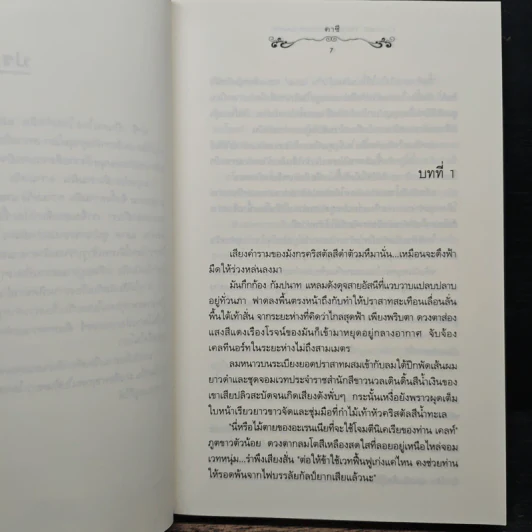 ดาซี
7
บทที่ 1
เสียงคำรามของมังกรคริสตัลสีดำตัวมหึมานั่น...เหมือนจะดึงฟ้า
มืดให้ร่วงหล่นลงมา
มันกึกก้อง กัมปนาท แหลมดังดุจสายอัสนีที่แวบวาบแปลบปลาบ
อยู่ทั่วนภา ฟาดลงพื้นตรงหน้าถึงกับทำให้ปราสาทสะเทือนเลื่อนลั่น
พื้นใต้เท้าสั่น จากระยะห่างที่คิดว่าไกลสุดฟ้า เพียงพริบตา ดวงตาส่อง
แสงสีแดงเรืองโรจน์ของมันก็เข้ามาหยุดอยู่กลางอากาศ จับจ้อง
เคลทีนอร์ทในระยะห่างไม่ถึงสามเมตร
ลมหนาวบนระเบียงยอดปราสาทผสมเข้ากับลมใต้ปีกพัดเส้นผม
ยาวดำและชุดจอมเวทประจำราชสำนักสีขาวนวลเดินดิ้นสีน้ำเงินของ
เขาเสียปลิวสะบัดจนเกิดเสียงดังพั่บๆ กระนั้นเหงื่อยังพราวผุดเต็ม
ใบหน้าเรียวยาวขาวจัดและชุ่มมือที่กำไม้เท้าหัวคริสตัลสีน้ำทะเล
"นี่หรือไม้ตายของอะเรนเนียที่จะใช้โจมตีนิเคเรียของท่าน เคลท์"
ภูตขาวตัวน้อย ดวงตากลมโตสีเหลืองสดใสที่ลอยอยู่เหนือไหล่จอม
เวทหนุ่ม...รำพึงเสียงสั่น "ต่อให้ข้าใช้เวทฟื้นฟูเก่งแค่ไหน คงช่วยท่าน
ให้รอดพ้นจากไฟบรรลัยกัลป์ยากเสียแล้วนะ"